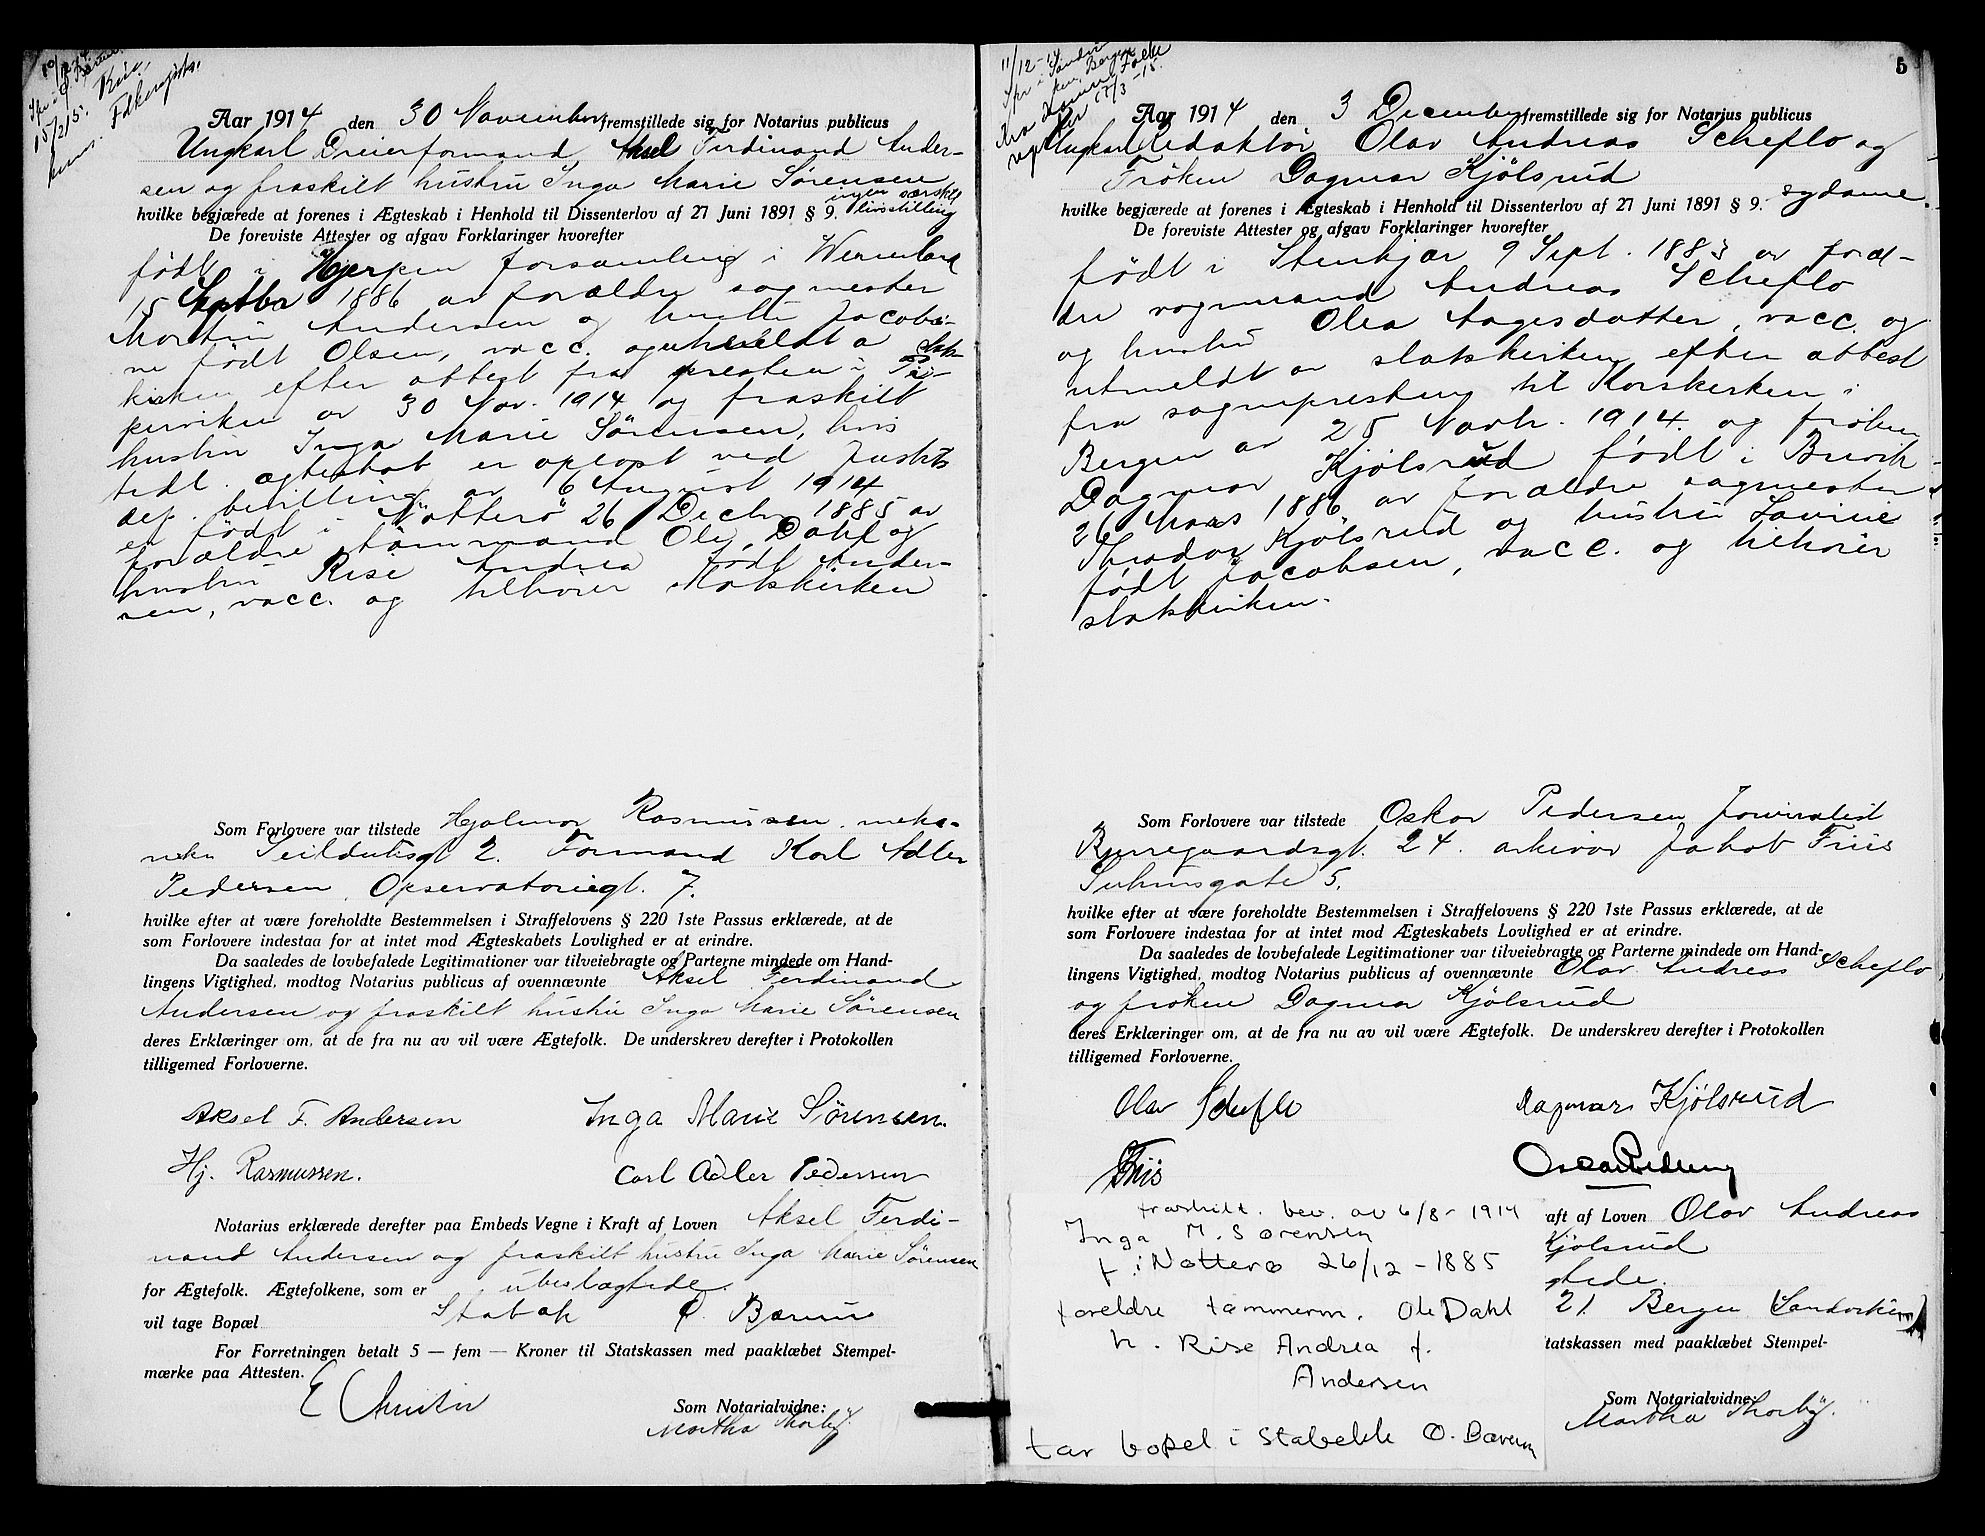 Aar 1914 den 30 November fremstillede sig for Notarius publicus
Ungkarl Dreierformand Aksel Ferdinand Ander-
sen og fraskilt hustru Inga Marie Sørensen
ingen særskilt
hvilke begjærede at forenes i Ægteskab i Henhold til Dissenterlov af 27 Juni 1891 § 9. livsstilling
De foreviste Attester og afgav Forklaringer hvorefter
født i forsamling i Wermland
15 Septbr 1886 av forældre sagmester
Martin Andersen og hustru Jacobi-
ne født Olsen, vacc. og utmeldt a Stats-
kirken efter attest fra presten i Pi-
perviken av 30 Nov. 1914 og fraskilt
hustru Inga Marie Sørensen, hvis
tidl. ægteskab er opløst ved Justits
dep. bevilling av 6 August 1914
er født i Nøtterø 26 Decbr 1885 av
forældre tømmermand Ole Dahl og
hustru Rise Andrea født Ander-
sen, vacc. og tilhører Statskirken
Som Forlovere var tilstede Hjalmar Rasmussen meka-
niker Seilduksgt 2. Formand Karl Adler
Pedersen, Observatoriegt. 7.
hvilke efter at være foreholdte Bestemmelsen i Straffelovens § 220 1ste Passus erklærede, at de
som Forlovere indestaa for at intet mod Ægteskabets Lovlighed er at erindre.
Da saaledes de lovbefalede Legitimationer var tilveiebragte og Parterne mindede om Hand-
lingens Vigtighed, modtog Notarius publicus af ovennævnte Aksel Ferdinand
Andersen og fraskilt hustru Inga Marie Sørensen
deres Erklæringer om, at de fra nu av vil være Ægtefolk. De underskrev derefter i Protokollen
tilligemed Forloverne.
Aksel F. Andersen Inga Marie Sørensen.
Hj. Rasmussen. Carl Adler Pedersen
Notarius erklærede derefter paa Embeds Vegne i Kraft af Loven Aksel Ferdi-
nand Andersen og fraskilt hustru Inga Marie Sørensen
for Ægtefolk. Ægtefolkene, som er ubeslægtede.
vil tage Bopæl Stabæk Ø. Bærum
For Forretningen betalt 5 — fem — Kroner til Statskassen med paaklæbet Stempel-
mærke paa Attesten.
Som Notarialvidne:
Martha Thorby.
5
11/12-14
Aar 1914 den 3 December fremstillede sig for Notarius publicus
Ungkarl Redaktør Olav Andreas Scheflo og
Frøken Dagmar Kjölsrud
sydame.
hvilke begjærede at forenes i Ægteskab i Henhold til Dissenterlov af 27 Juni 1891 § 9.
De foreviste Attester og afgav Forklaringer hvorefter
født i Stenkjær 9 Sept. 1883 av foræl-
dre vognmand Andreas Scheflo
og hustru Olea Aagesdatter, vacc. og
utmeldt av statskirken efter attest
fra sognepresten til Korskirken i
Bergen av 25 Novbr. 1914 og frøken
Dagmar Kjölsrud født i Brevik
26 Mars 1886 av forældre sagmester
Theodor Kjölsrud og hustru Lovine
født Jacobsen, vacc. og tilhører
statskirken.
Som Forlovere var tilstede Oskar Pedersen Journalist
Bjerregaardsgt. 24. arkivar Jakob Friis
Suhmsgate 5.
hvilke efter at være foreholdte Bestemmelsen i Straffelovens § 220 1ste Passus erklærede, at de
som Forlovere indestaa for at intet mod Ægteskabets Lovlighed er at erindre.
Da saaledes de lovbefalede Legitimationer var tilveiebragte og Parterne mindede om Hand-
lingens Vigtighed, modtog Notarius publicus af ovennævnte Olav Andreas Scheflo
og frøken Dagmar Kjölsrud
deres Erklæringer om, at de fra nu av vil være Ægtefolk. De underskrev derefter i Protokollen
tilligemed Forloverne.
Olav Scheflo Dagmar Kjölsrud
Friis Oscar Pedersen
fraskilt. bev. av 6/8-1914
Inga M. Sørensen
f. i Nøtterø 26/12-1885
foreldre tømmerm. Ole Dahl
h. Rise Andrea f.
Andersen
tar bopel i Stabekk Ø. Bærum
aft af Loven Olav Andreas
Kjölsrud
gtede.
21 Bergen Sandviken
tatskassen med paaklæbet Stempel-
Som Notarialvidne:
Martha Thorby.